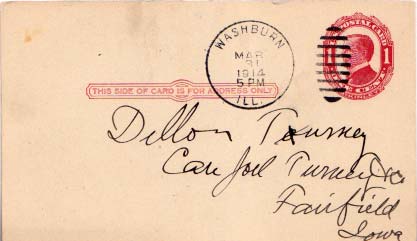 WASHBURN
MAR
31
1914
5 PM
ILL.
POSTAL CARD
1
THIS SIDE OF CARD IS FOR ADDRESS ONLY
Dillon Turney
Care Joel Turney &
Fairfield
Iowa